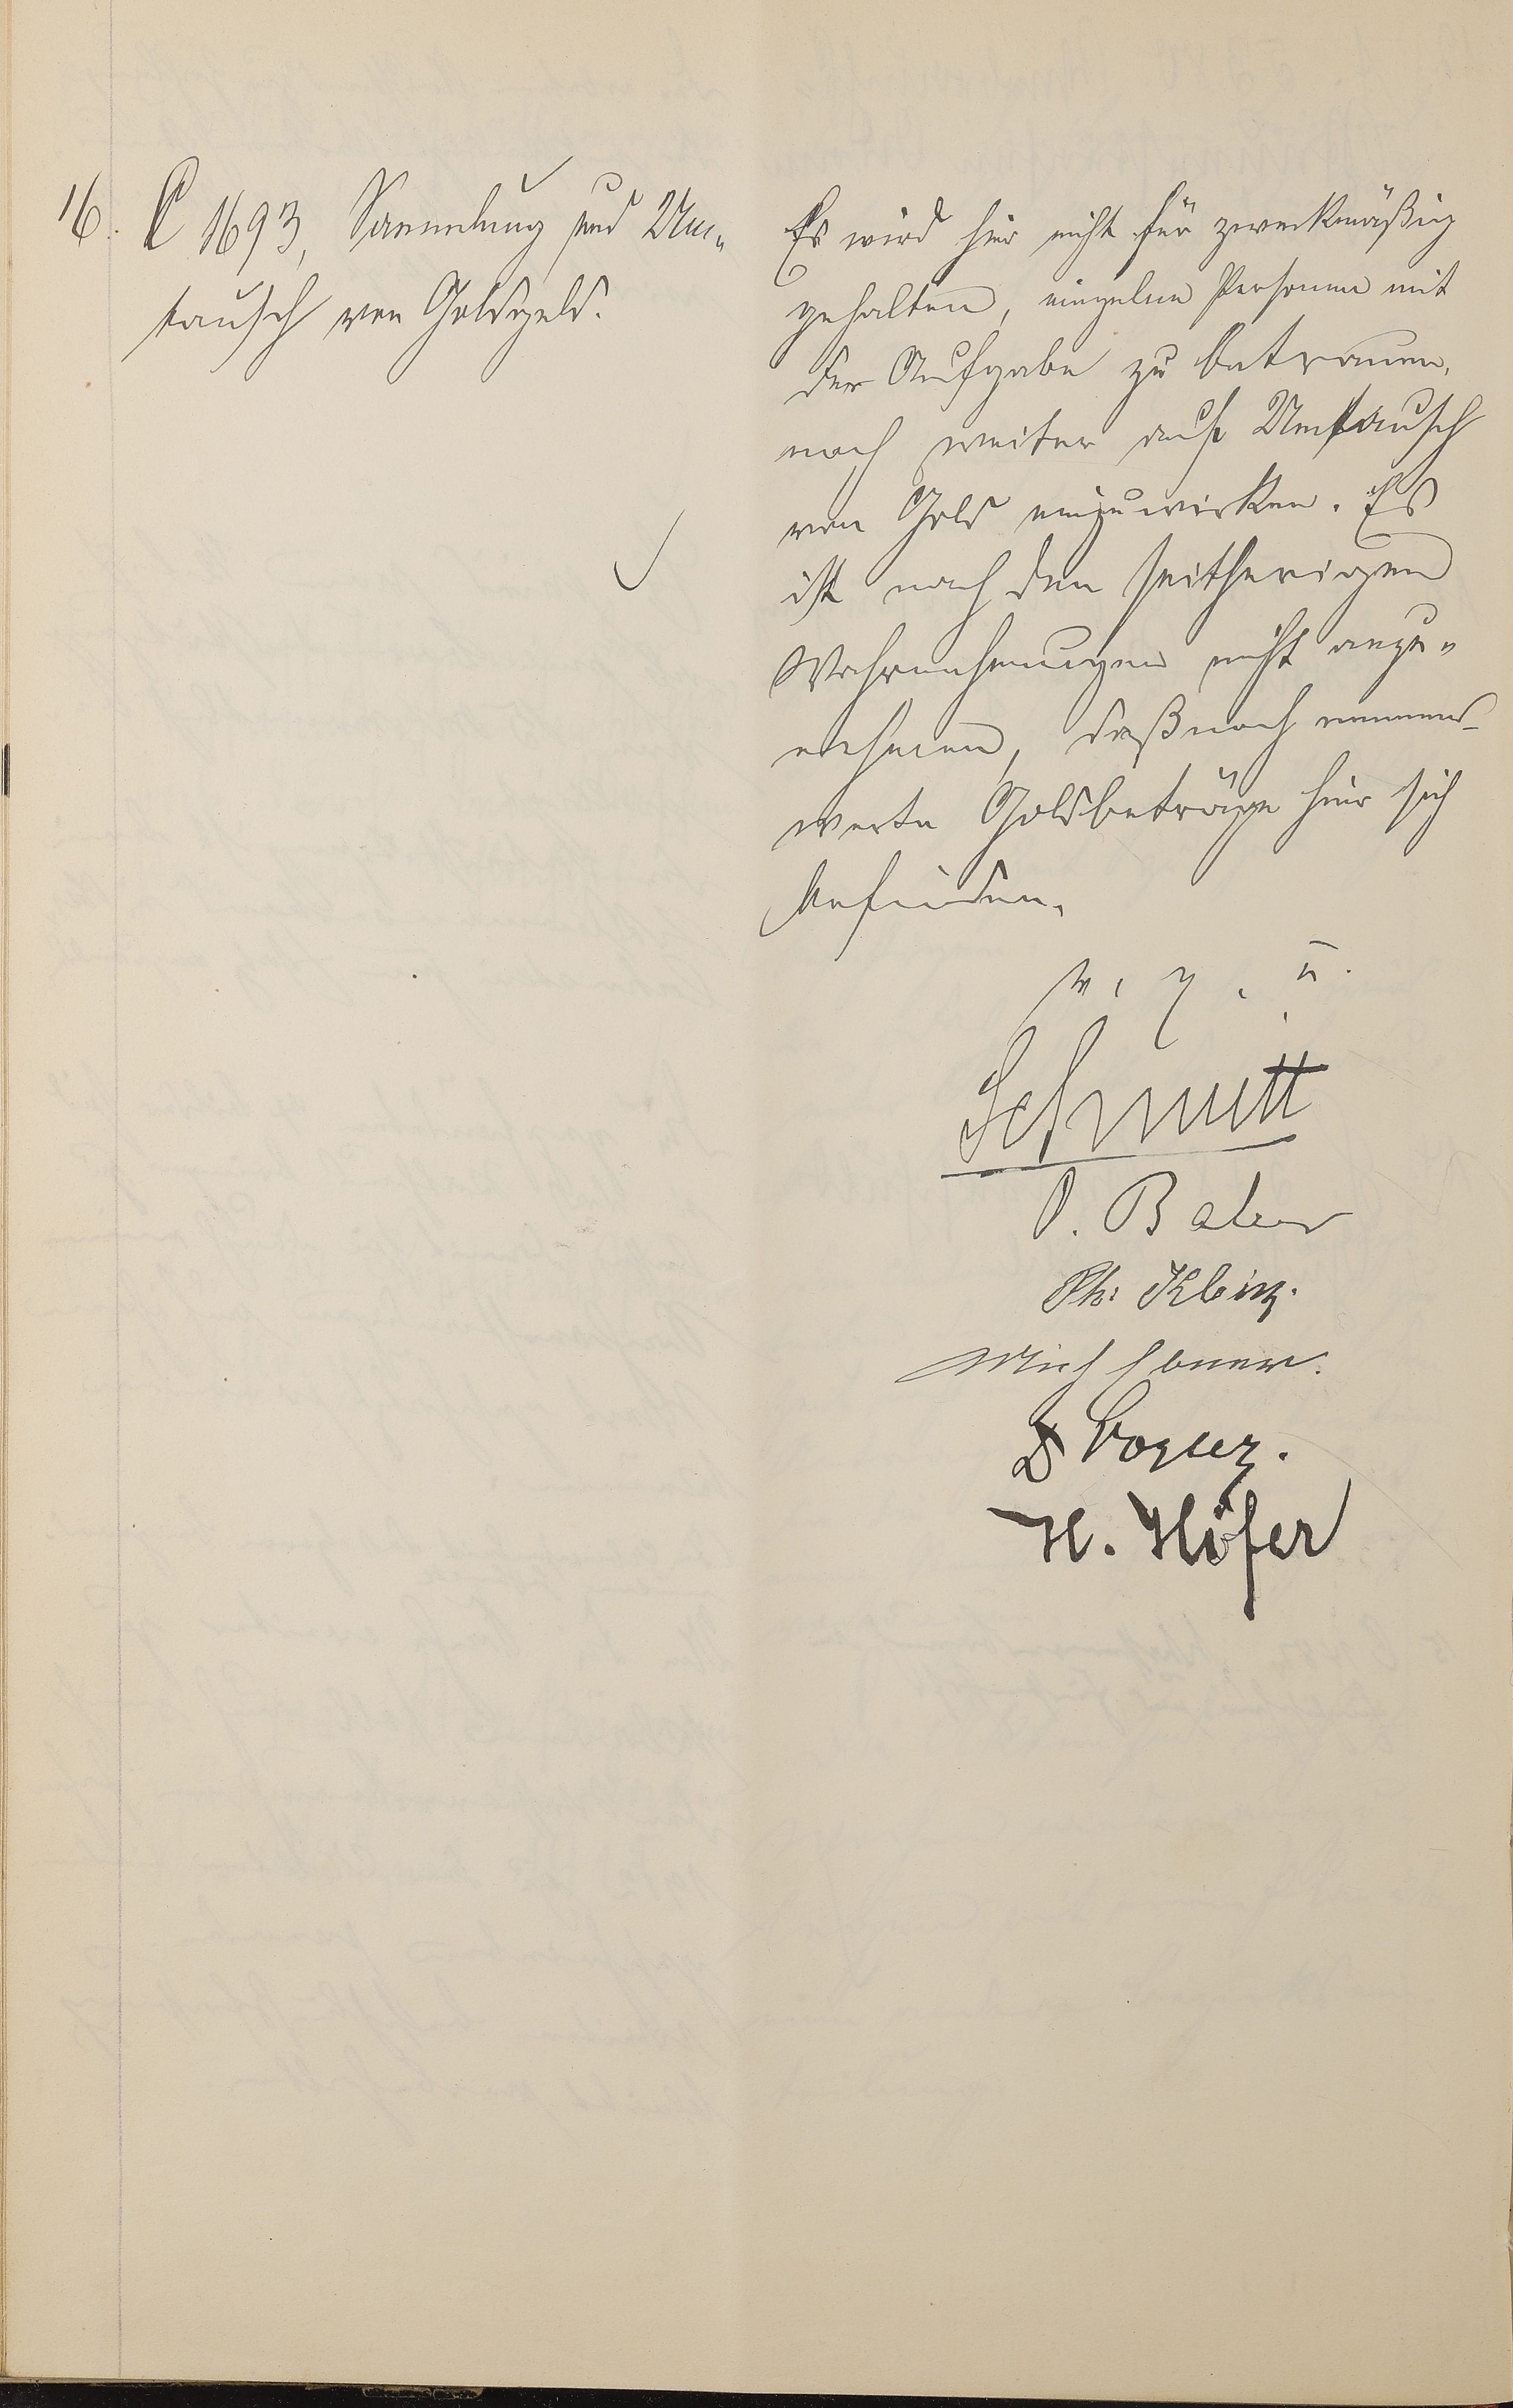 16. C 1693, Sammlung und Um„
tausch von Goldgeld.
Es wird hier nicht für zweckmäßig
gehalten, einzelne Personen mit
der Aufgabe zu betrauen,
noch weiter auf Umtausch
von Gold einzuwirken. Es
ist nach den seitherigen
Wahrnehmungen nicht anzu„
nehmen, daß noch nennens-
werte Goldbeträge hier sich
befinden.
v. g. u.
Schmitt
Ph. Klein.
H. Höfer